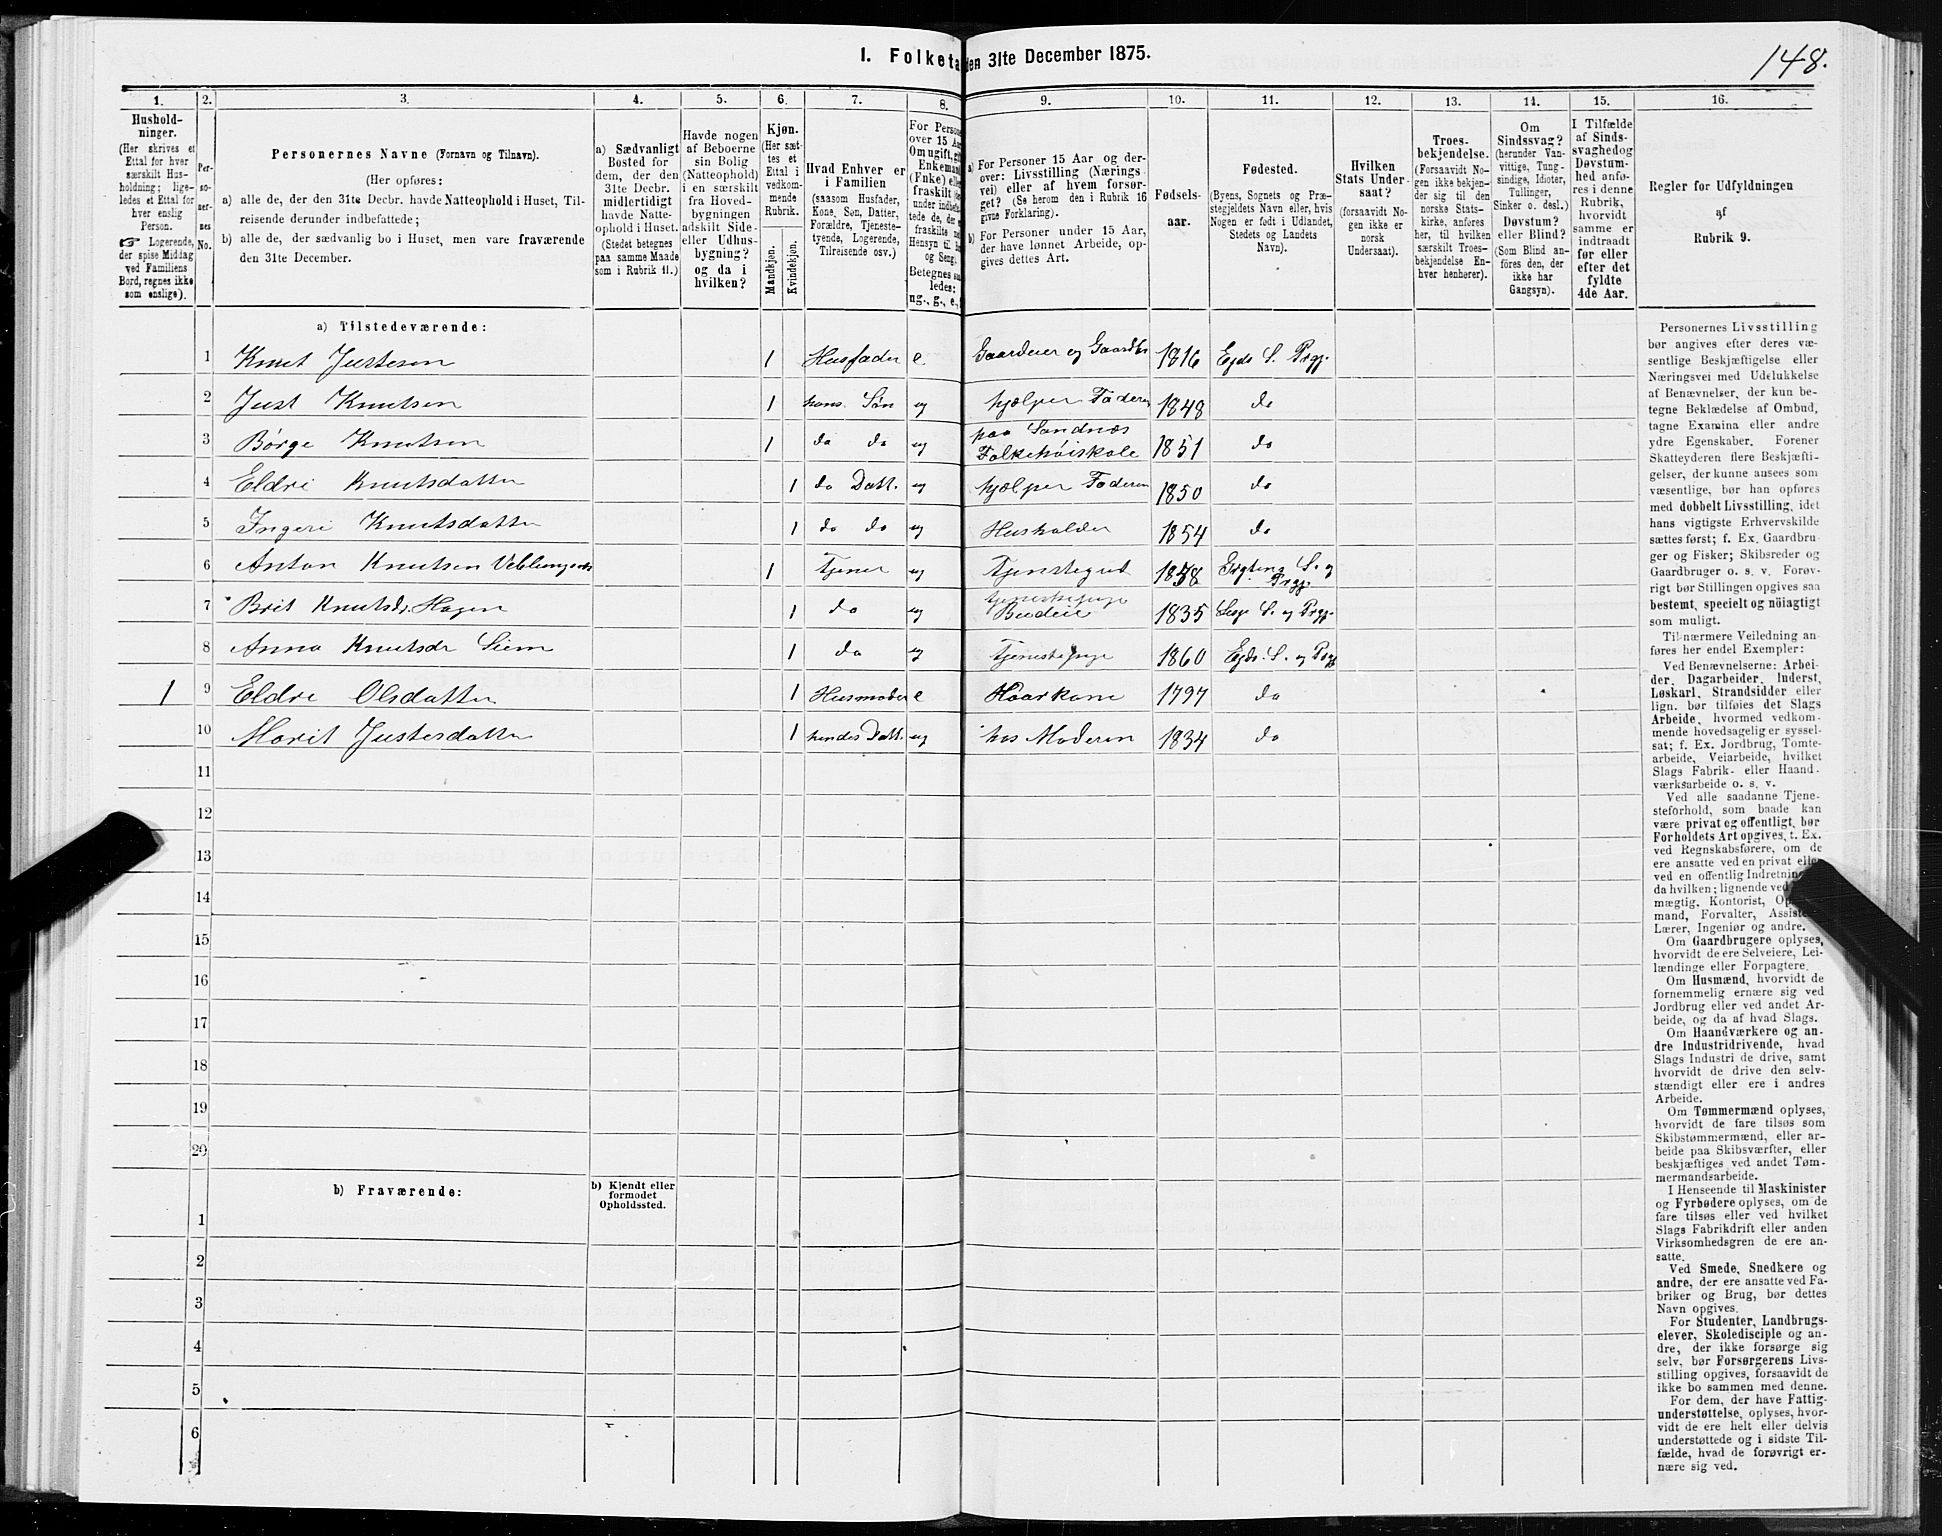 I. Folketa
den 31te December 1875.
148.
1.
2.
3.
4.
5.
6.
7.
8.
9.
10.
11.
12.
13.
14.
15.
16.
Hushold-
ninger.
(Her skrives et
Ettal for hver
særskilt Hus-
holdning; lige-
ledes et Ettal for
hver enslig
Person.
☞ Logerende,
der spise Middag
ved Familiens
Bord, regnes ikke
som enslige).
Per-
so-
ner-
nes
No.
Personernes Navne (Fornavn og Tilnavn).
(Her opføres:
a) alle de, der den 31te Decbr. havde Natteophold i Huset, Til-
reisende derunder indbefattede;
b) alle de, der sædvanlig bo i Huset, men vare fraværende
den 31te December.
a) Sædvanligt
Bosted for
dem, der den
31te Decbr.
midlertidigt
havde Natte-
ophold i Huset.
(Stedet betegnes
paa samme Maade
som i Rubrik 11.)
Havde nogen
af Beboerne
sin Bolig
(Natteophold)
i en særskilt
fra Hoved-
bygningen
adskilt Side-
eller Udhus-
bygning?
og da i
hvilken?
Kjøn.
(Her sæt-
tes et
Ettal i
vedkom-
mende
Rubrik.
Mandkjøn.
Kvindekjøn.
Hvad Enhver er
i Familien
(saasom Husfader,
Kone, Søn, Datter,
Forældre, Tjeneste-
tyende, Logerende,
Tilreisende osv.)
For Persone
over 15 Aa
Om ugift, gif
Enkemand
(Enke) elle
fraskilt
Betegnes saa
ledes:
ug., g., e.,
a) For Personer 15 Aar og der-
over: Livsstilling (Nærings-
vei) eller af hvem forsør-
get? (Se herom den i Rubrik 16
givne Forklaring).
b) For Personer under 15 Aar,
der have lønnet Arbeide, op-
gives dettes Art.
Fødsels-
aar.
Fødested.
(Byens, Sognets og Præ-
stegjeldets Navn eller, hvis
Nogen er født i Udlandet,
Stedets og Landets
Navn).
Hvilken
Stats Under-
saat?
(forsaavidt No-
gen ikke er
norsk
Undersaat).
Troes-
bekjendelse.
(Forsaavidt No-
gen ikke bekjen-
der sig til den
norske Stats-
kirke, anføres
her, til hvilken
særskilt Troes-
bekjendelse En-
hver henhører).
Om
Sindssvag?
(herunder Van-
vittige, Tung-
sindige, Idioter,
Tullinger,
Sinker o. desl.)
Døvstum?
eller Blind?
(Som Blind an-
føres den, der
ikke har
Gangsyn).
I Tilfælde
af Sinds-
svaghed og
Døvstum-
hed anfø-
res i denne
Rubrik,
hvorvidt
samme er
indtraadt
før eller
efter det
fyldte
4de Aar.
Regler for Udfyldningen
af
Rubrik 9.
a) Tilstedeværende:
1 Knut Justesen 1 Husfader e Gaardeier og Gaardbr 1816 Ejds S. Prgj.
2 Just Knutsen 1 hans Søn ug hjælper Faderen 1848 do
3 Børge Knutsen 1 do do ug paa Sandnæs
Folkehøiskole 1851 do
4 Eldri Knutsdatter 1 do Datt. ug hjælper Faderen 1850 do
5 Ingeri Knutsdatter 1 do do ug Husholder 1854 do
6 Anton Knutsen Veblungsnes 1 Tjener ug Tjenstegut 1858 Grytens S. og
Prgj.
7 Brit Knutsdr. Hagen 1 do ug Tjenestepige
Budeie 1835 Lesje S. og Prgj.
8 Anna Knutsdr Siem 1 do ug Tjenestepige 1860 Ejds. S. og Prgj
1 9 Eldri Olsdatter 1 Husmoder e Kaarkone 1797 do
10 Marit Justesdatter 1 hendes Datt. ug hos Moderen 1834 do
11
12
13
14
15
16
17
18
19
20
b) Fraværende:
b) Kjendt eller
formodet
Opholdssted.
1
2
3
4
5
6
Personernes Livsstilling
bør angives efter deres væ-
sentlige Beskjæftigelse eller
Næringsvei med Udelukkelse
af Benævnelser, der kun be-
tegne Beklædelse af Ombud,
tagne Examina eller andre
ydre Egenskaber. Forener
Skatteyderen flere Beskjæfti-
gelser, der kunne ansees som
væsentlige, bør han opføres
med dobbelt Livsstilling, idet
hans vigtigste Erhvervskilde
sættes først; f. Ex. Gaardbru-
ger og Fisker; Skibsreder og
Gaardbruger o. s. v. Forøv-
rigt bør Stillingen opgives saa
bestemt, specielt og nøiagtigt
som muligt.
Til nærmere Veiledning an-
føres her endel Exempler:
Ved Benævnelserne: Arbei-
der, Dagarbeider, Inderst,
Løskarl, Strandsidder eller
lign. bør tilføies det Slags
Arbeide, hvormed vedkom-
mende hovedsagelig er syssel-
sat; f. Ex. Jordbrug, Tomte-
arbeide, Veiarbeide, hvilket
Slags Fabrik- eller Haand-
værksarbeide o. s. v.
Ved alle saadanne Tjene-
steforhold, som baade kan
være privat og offentligt, bør
Forholdets Art opgives, t. Ex.
ved Regnskabsførere, om de
ere ansatte ved en privat eller
ved en offentlig Indretning
da hvilken; lignende ved
mægtig, Kontorist, Op
mand, Forvalter, Assiste
Lærer, Ingeniør og andre.
Om Gaardbrugere oplyses,
hvorvidt de ere Selveiere, Lei-
lændinge eller Forpagtere.
Om Husmænd, hvorvidt de
fornemmelig ernære sig ved
Jordbrug eller ved andet Ar-
beide, og da af hvad Slags.
Om Haandværkere og an-
dre Industridrivende, hvad
Slags Industri de drive, samt
hvorvidt de drive den selv-
stændigt eller ere i andres
Arbeide.
Om Tømmermænd oplyses,
hvorvidt de fare tilsøs som
Skibstømmermænd, eller ar-
beide paa Skibsværfter, eller
beskjæftiges ved andet Tøm-
mermandsarbeide.
I Henseende til Maskinister
og Fyrbødere oplyses, om de
fare tilsøs eller ved hvilket
Slags Fabrikdrift eller anden
Virksomhedsgren de ere an-
satte.
Ved Smede, Snedkere og
andre, der ere ansatte ved Fa-
briker og Brug, bør dettes
Navn opgives.
For Studenter, Landbrugs-
elever, Skoledisciple og an-
dre, der ikke forsørge sig
selv, bør Forsørgerens Livs-
stilling opgives, forsaavidt de
ikke bo sammen med denne.
For dem, der have Fattig-
understøttelse, oplyses, hvor-
vidt de ere helt eller delvis
understøttede og i sidste Til-
fælde, hvad de forøvrigt er-
nære sig ved.